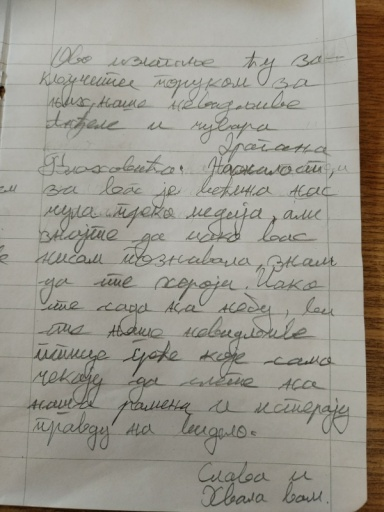 Ово излагање ћу за-
кључити поруком за
њих, наше невидљиве
анђеле и чувара
Драгана
Влаховића. Нажалост, и
за вас је истина нас
чула преко медија, али
знајте да иако вас
нисам познавала, знам
да сте хероји. Иако
сте сада на небу, ви
сте наше невидљиве
птице које само
чекају да слете на
наша рамена и истерају
правду на видело.
Слава и
Хвала вам.